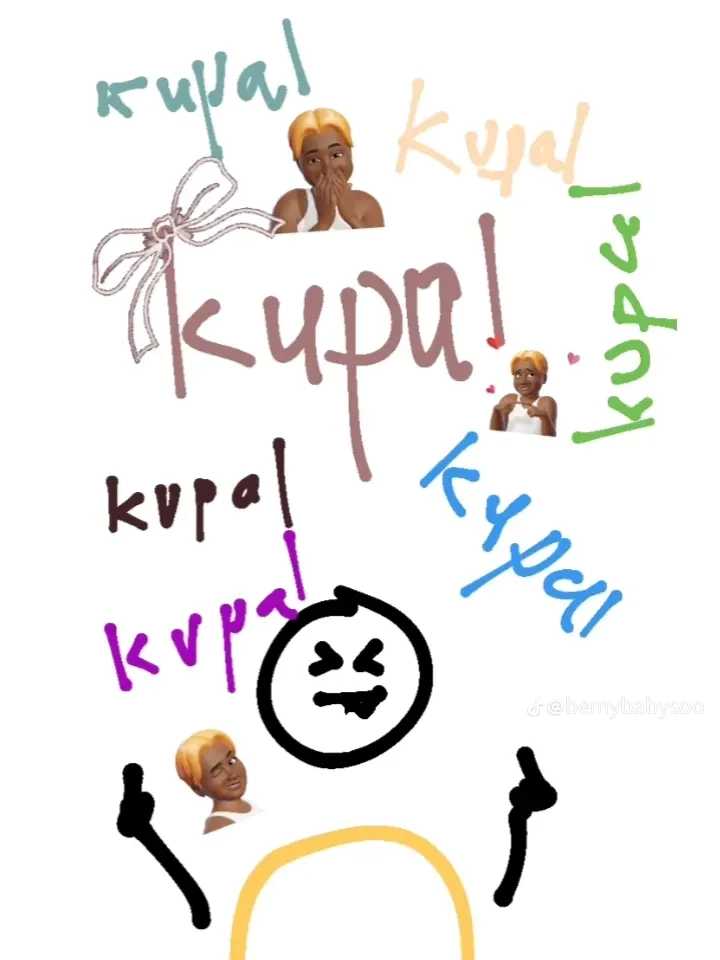 kupal
kupal
kupal
kupal
kupal
kupal
kupal
@bemybabysoo